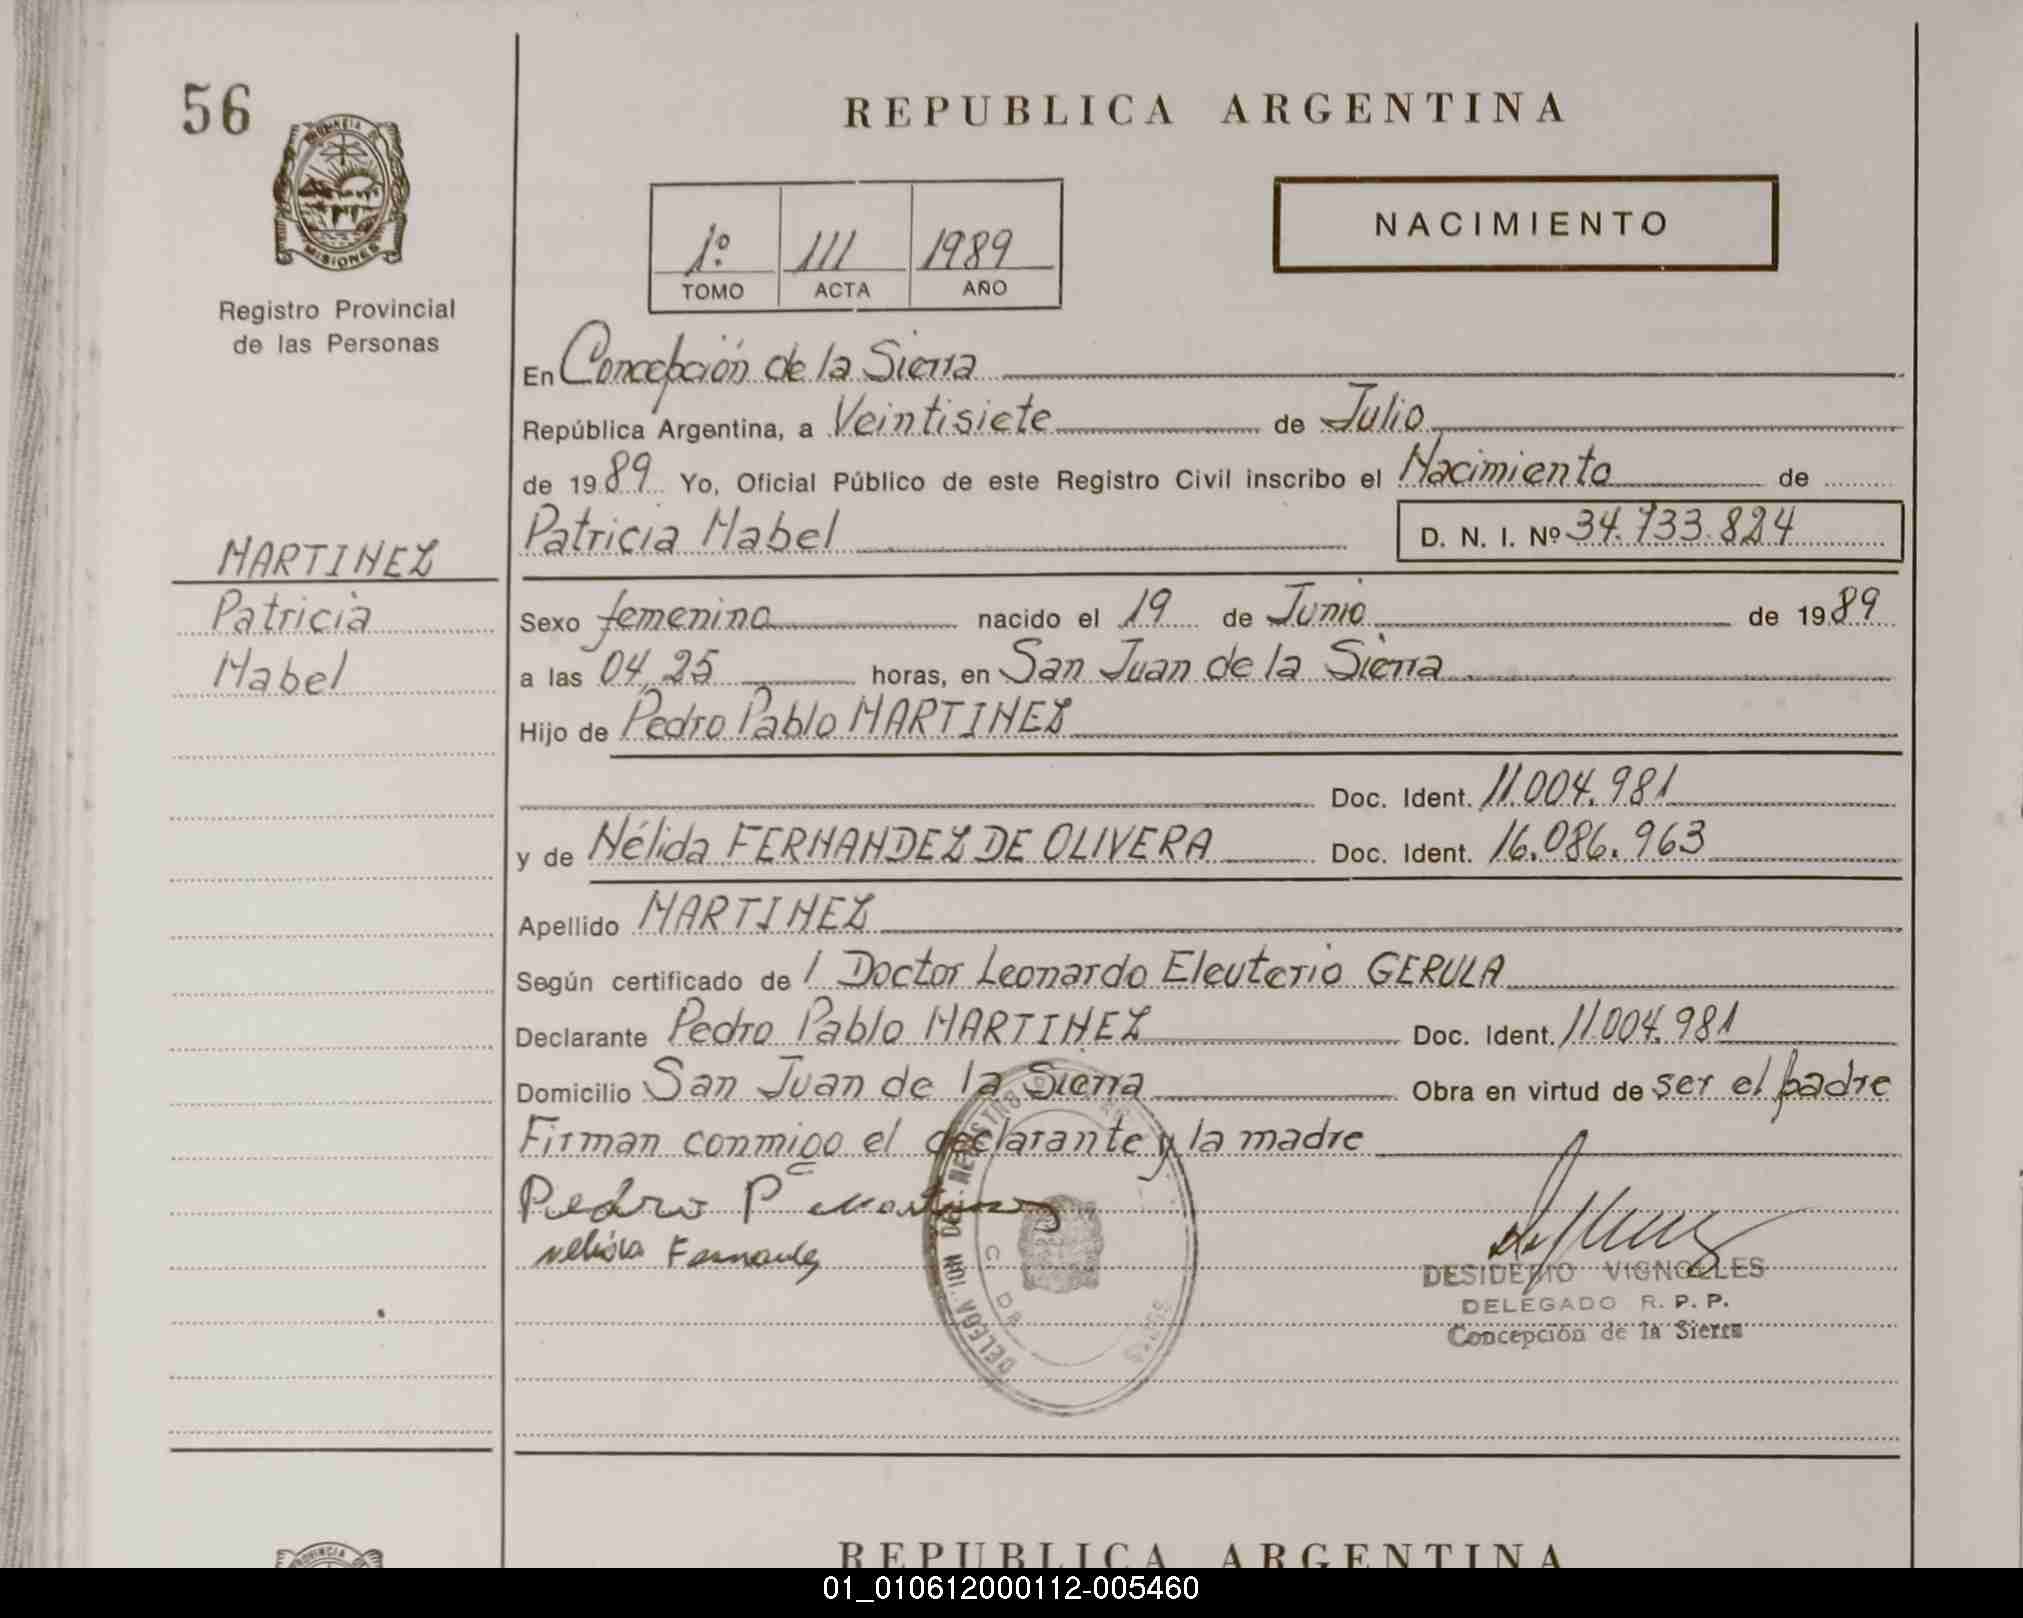 56
PROVINCIA DE
MISIONES
Registro Provincial
de las Personas
REPUBLICA ARGENTINA
1º 111 1989
TOMO ACTA AÑO
NACIMIENTO
En Concepción de la Sierra
República Argentina, a Veintisiete de Julio
de 1989 Yo, Oficial Público de este Registro Civil inscribo el Nacimiento de
Patricia Mabel D. N. I. Nº 34.733.824
MARTINEZ
Patricia
Mabel
Sexo femenino nacido el 19 de Junio de 1989
a las 04,25 horas, en San Juan de la Sierra
Hijo de Pedro Pablo MARTINEZ
Doc. Ident. 11.004.981
y de Nélida FERNANDEZ DE OLIVERA Doc. Ident. 16.086.963
Apellido MARTINEZ
Según certificado de l Doctor Leonardo Eleuterio GERULA
Declarante Pedro Pablo MARTINEZ Doc. Ident. 11.004.981
Domicilio San Juan de la Sierra Obra en virtud de ser el padre
Firman conmigo el declarante y la madre
Pedro P Martinez
Nelida Fernandez
DESIDERIO VIGNOLLES
DELEGADO R. P. P.
Concepción de la Sierra
PROVINCIA
REPUBLICA ARGENTINA
01_010612000112-005460